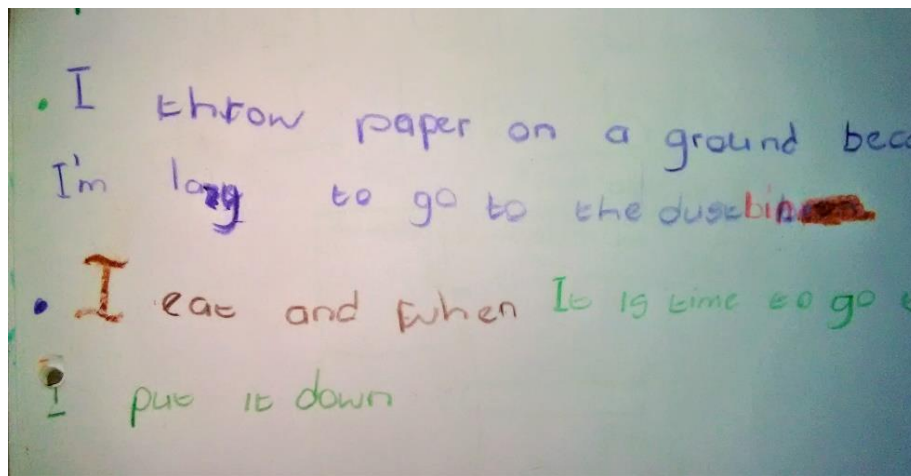 • I throw paper on a ground beca
I'm lazy to go to the dustbin
• I eat and when It is time to go t
I put it down